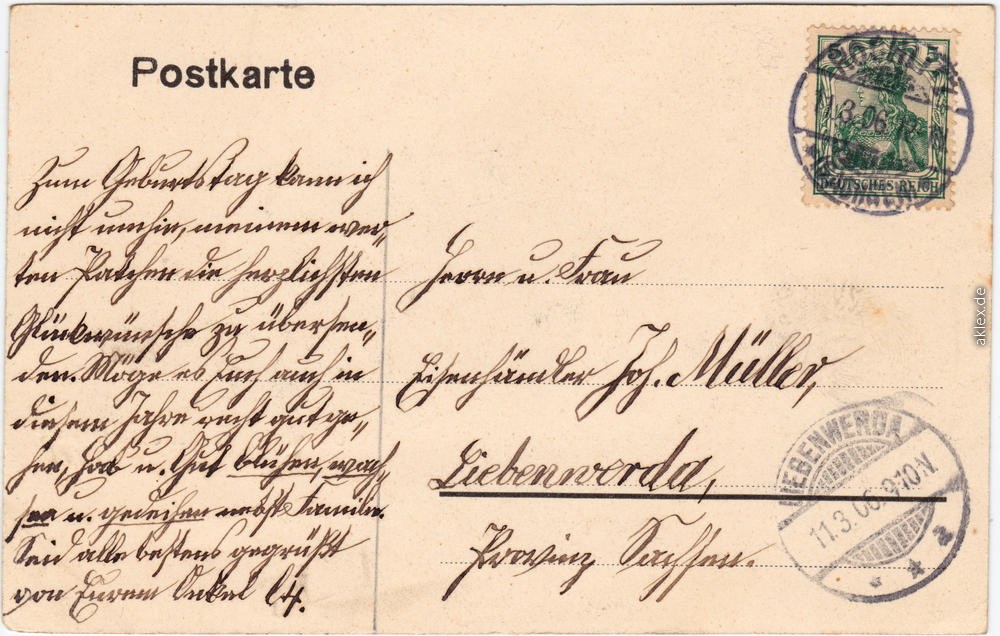 Postkarte
Zum Geburtstag kann ich
nicht umhin, meinem wer-
ten Patchen die herzlichsten
Glückwünsche zu übersen-
den. Möge es Euch auch in
diesem Jahre recht gut ge-
hen, Hab u. Gut blühen, wach-
sen u. gedeihen nebst Familie.
Seid alle bestens gegrüßt
von Eurem Onkel
Herrn u. Frau
Eisenhändler Joh. Müller,
Liebenwerda,
Provinz Sachsen.
5 5
DEUTSCHES REICH
11.3.06
LIEBENWERDA
11.3.06. 9-10 N.
* * a
aklex.de